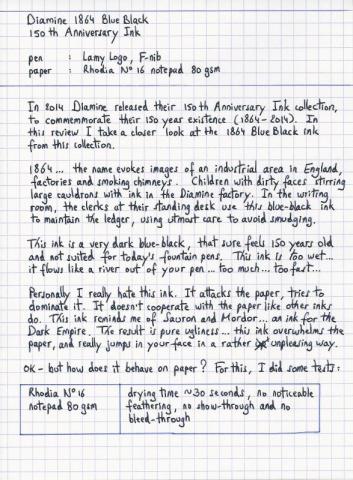 Diamine 1864 Blue Black
150th Anniversary Ink
pen : Lamy Logo, F-nib
paper : Rhodia Nº 16 notepad 80 gsm
In 2014 Diamine released their 150th Anniversary Ink collection,
to commemorate their 150 year existence (1864-2014). In
this review I take a closer look at the 1864 Blue Black ink
from this collection.
1864... the name evokes images of an industrial area in England,
factories and smoking chimneys. Children with dirty faces stirring
large cauldrons with ink in the Diamine factory. In the writing
room, the clerks at their standing desk use this blue-black ink
to maintain the ledger, using utmost care to avoid smudging.
This ink is a very dark blue-black, that sure feels 150 years old
and not suited for today's fountain pens. This ink is too wet...
it flows like a river out of your pen... too much... too fast...
Personally I really hate this ink. It attacks the paper, tries to
dominate it. It doesn't cooperate with the paper like other inks
do. This ink reminds me of Sauron and Mordor... an ink for the
Dark Empire. The result is pure ugliness... this ink overwhelms the
paper, and really jumps in your face in a rather unpleasing way.
OK - but how does it behave on paper? For this, I did some tests:
Rhodia Nº 16
notepad 80 gsm
drying time ~30 seconds, no noticeable
feathering, no show-through and no
bleed-through